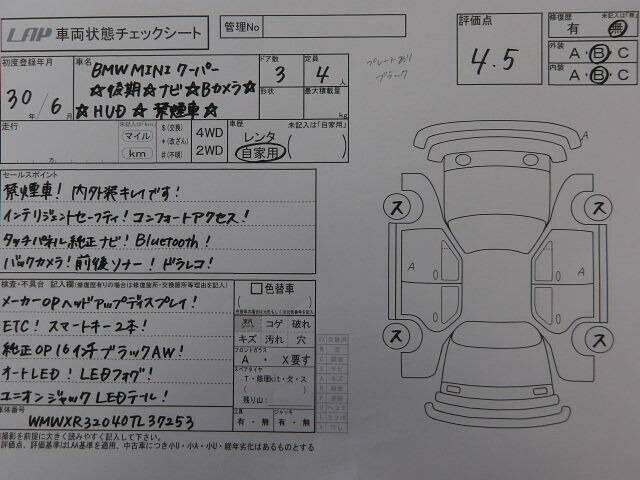 LAP 車両状態チェックシート
管理No
評価点
4.5
修復歴
未記入は「無」
有 ・ 無
外装 A・B・C
内装 A・B・C
初度登録年月
30年/6月
車名
BMW MINI クーパー
☆後期☆ナビ☆Bカメラ☆
☆HUD☆禁煙車☆
ドア数
3
定員
4人
形状
最大積載量
kg
プレートあり
ブラック
走行
未記入は「km」
マイル
km
$(交換)
*(改ざん)
#(不明)
4WD
2WD
車歴
未記入は「自家用」
レンタ
自家用
セールスポイント
禁煙車! 内外装キレイです!
インテリジェントセーフティ! コンフォートアクセス!
タッチパネル純正ナビ! Bluetooth!
バックカメラ! 前後ソナー! ドラレコ!
検査・不具合 記入欄(修復歴有りの場合は修復箇所・交換箇所等理由を記入)
メーカーOPヘッドアップディスプレイ!
ETC! スマートキー2本!
純正OP16インチブラックAW!
オートLED! LEDフォグ!
ユニオンジャックLEDテール!
色替車
コゲ 破れ
キズ 汚れ 穴
フロントガラス
A ・ X要す
スペアタイヤ
T・修理kit・欠・ス
残り山:
工具
有・無
ジャッキ
有・無
車体番号
WMWXR32040TL37253
撮影を前提に大きく読みやすく記入して下さい。
評価点、評価基準はLAA基準を適用、中古車につき小U・小A・小U・経年劣化はあるものとする
A
ス
ス
A
A
ス
ス